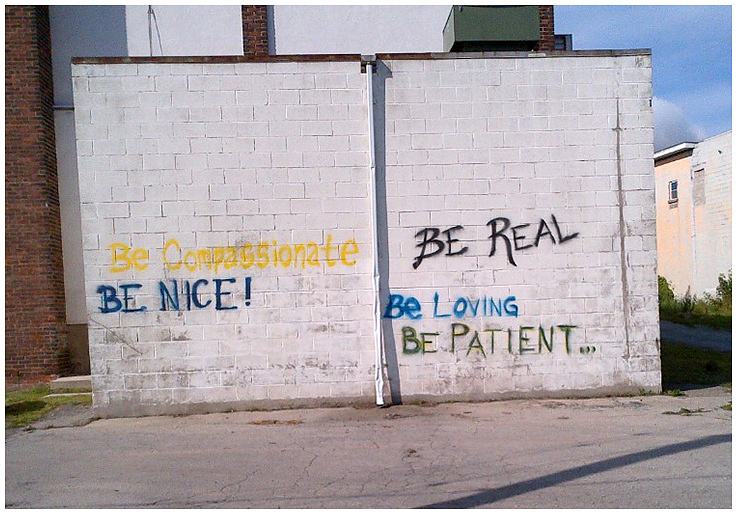 Be Compassionate
BE NICE!
BE REAL
Be LOVING
BE PATIENT...